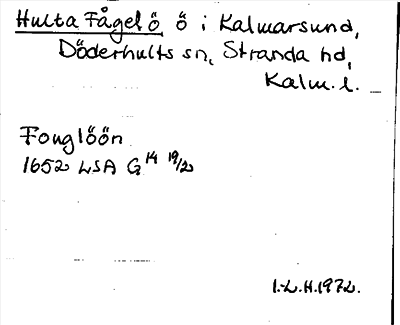 Hulta Fågelö ö i Kalmarsund,
Döderhults sn, Stranda hd,
Kalm. l.
Fouglöön
1652 LSA G14 19/2
I.L.H. 1972.